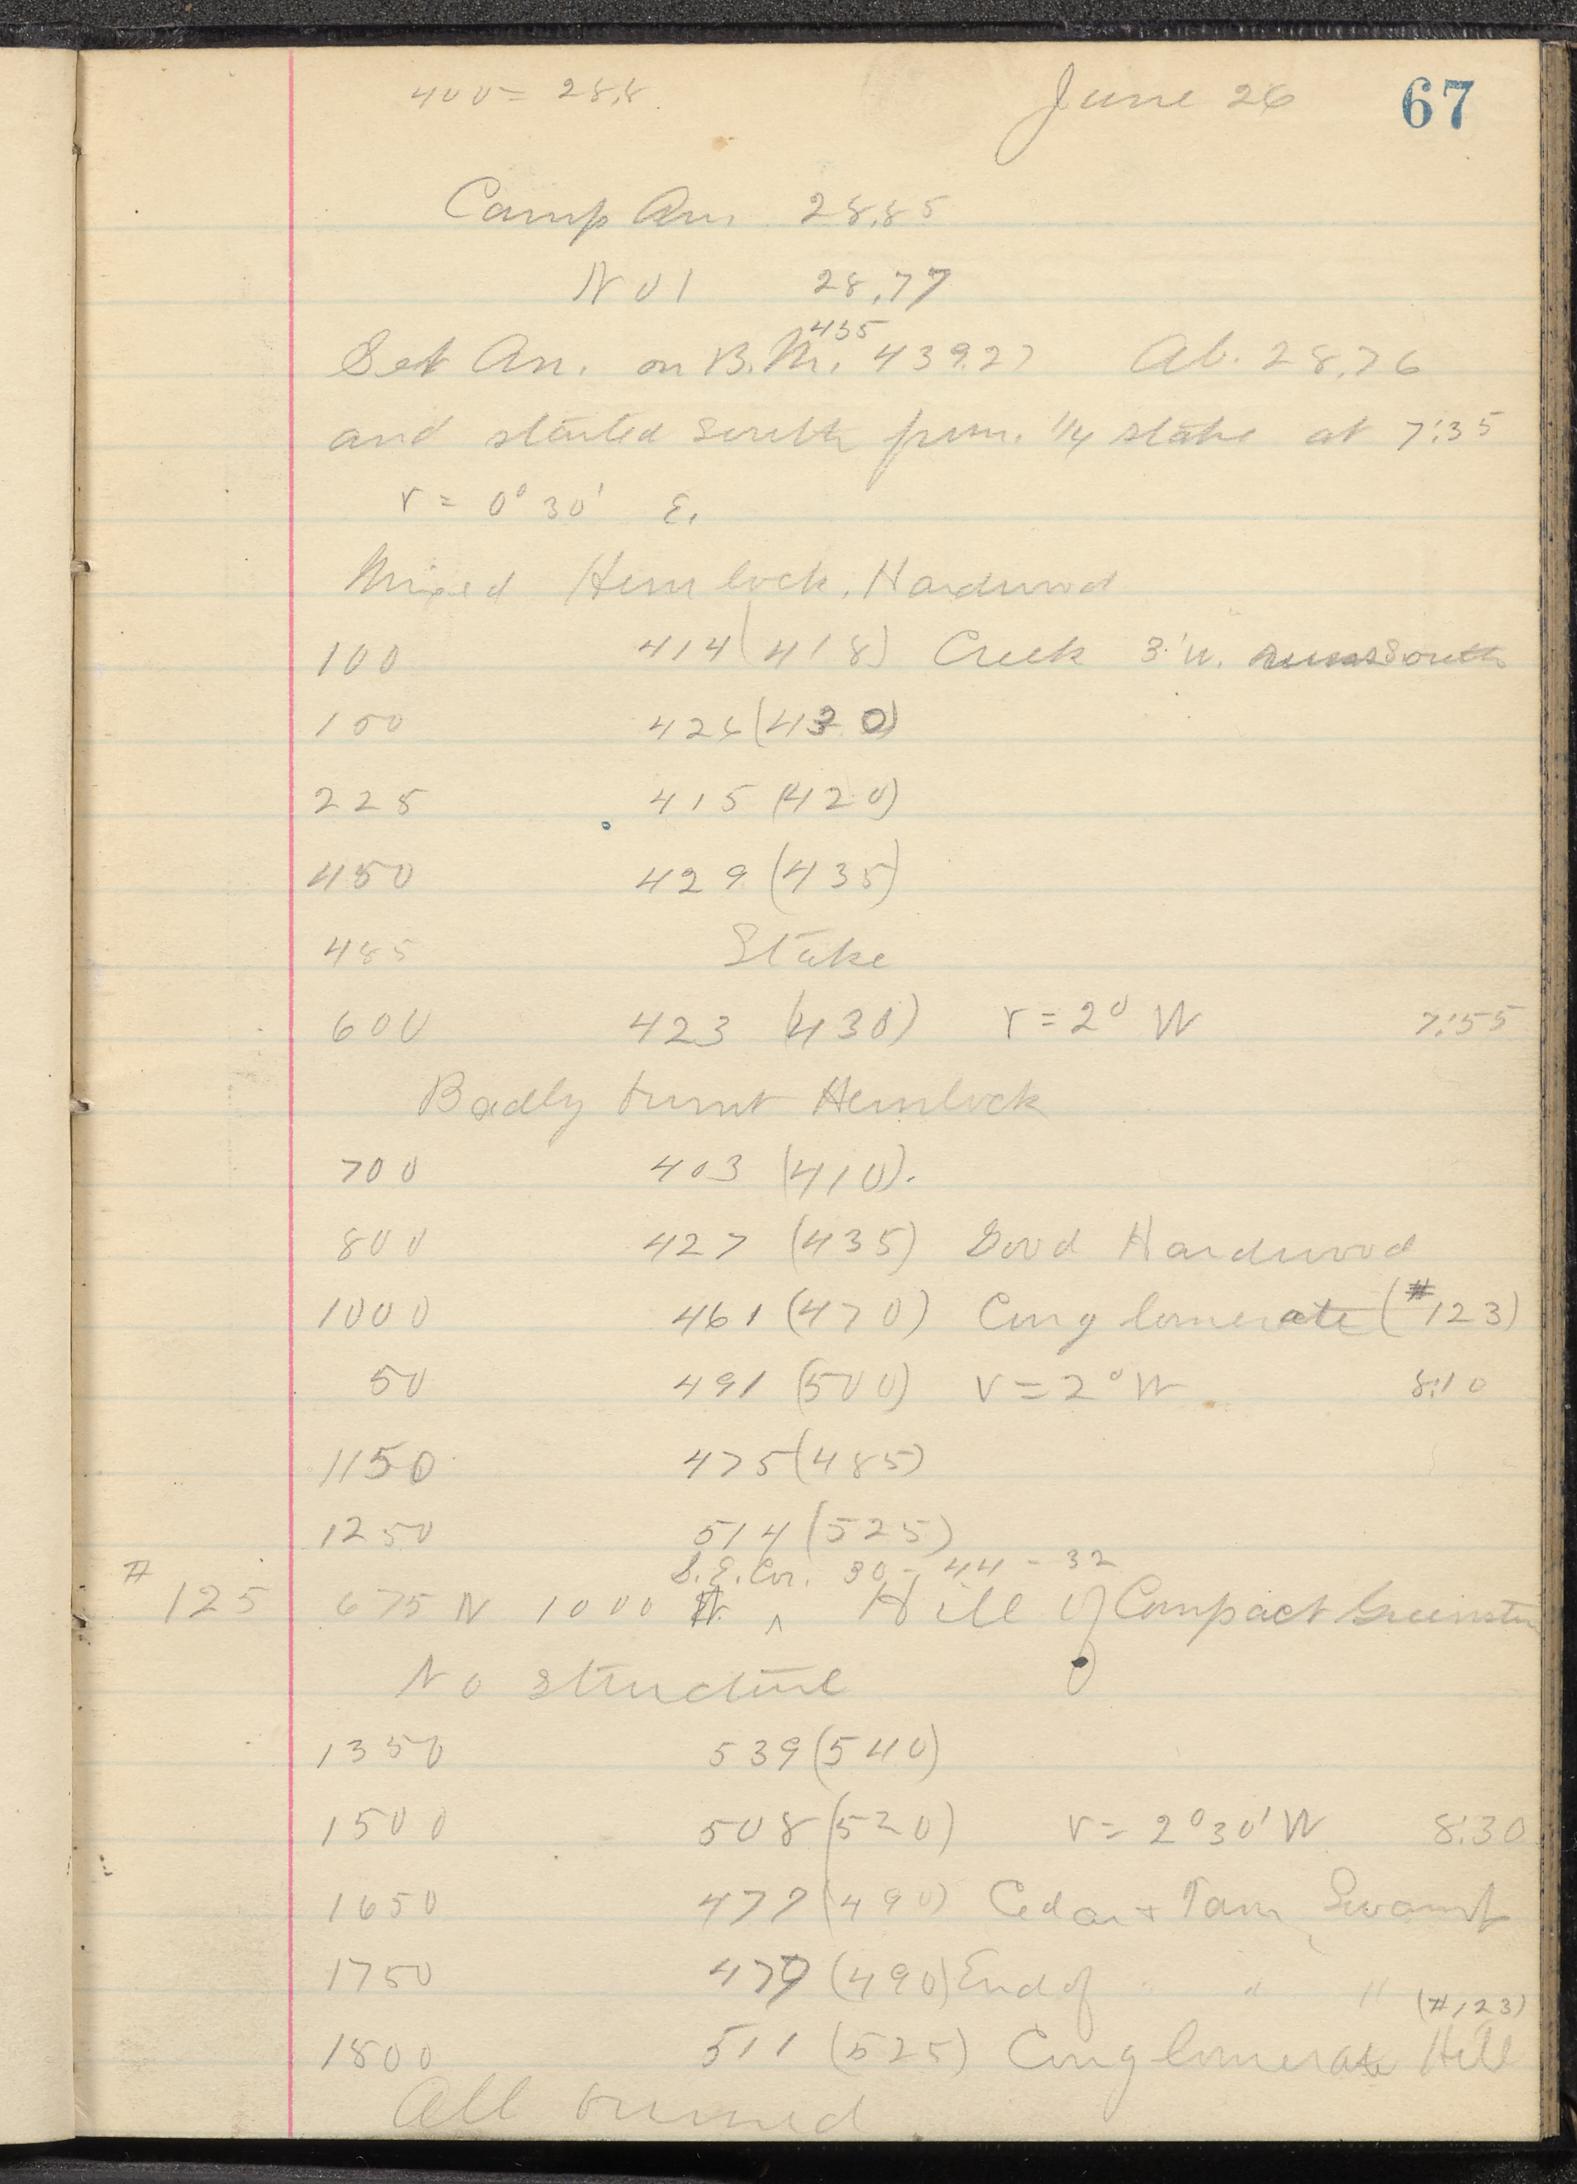 400 = 28.8. June 26 67
Camp An. 28.85
No 1 28.77
435
Set An. on B.M. 439.27 Ab. 28.76
and started south from 1/4 stake at 7:35
r = 0° 30' E.
Mixed Hemlock, Hardwood
100 414 (418) Creek 3' w. runs South
150 426 (430)
225 415 (420)
450 429 (435)
485 Stake
600 423 (430) r = 2° W 7:55
Badly burnt Hemlock
700 403 (410).
800 427 (435) Good Hardwood
1000 461 (470) Conglomerate (#123)
50 491 (500) r = 2° W 8:10
1150 475 (485)
1250 514 (525)
S.E. Cor. 30 - 44 - 32
#125 675 N 1000 W. ^ Hill of Compact Greenstone
No structure
1350 539 (540)
1500 508 (520) r = 2°30' W 8:30
1650 477 (490) Cedar + Tam. Swamp
1750 479 (490) End of " " "
(#123)
1800 511 (525) Conglomerate Hill
All burned